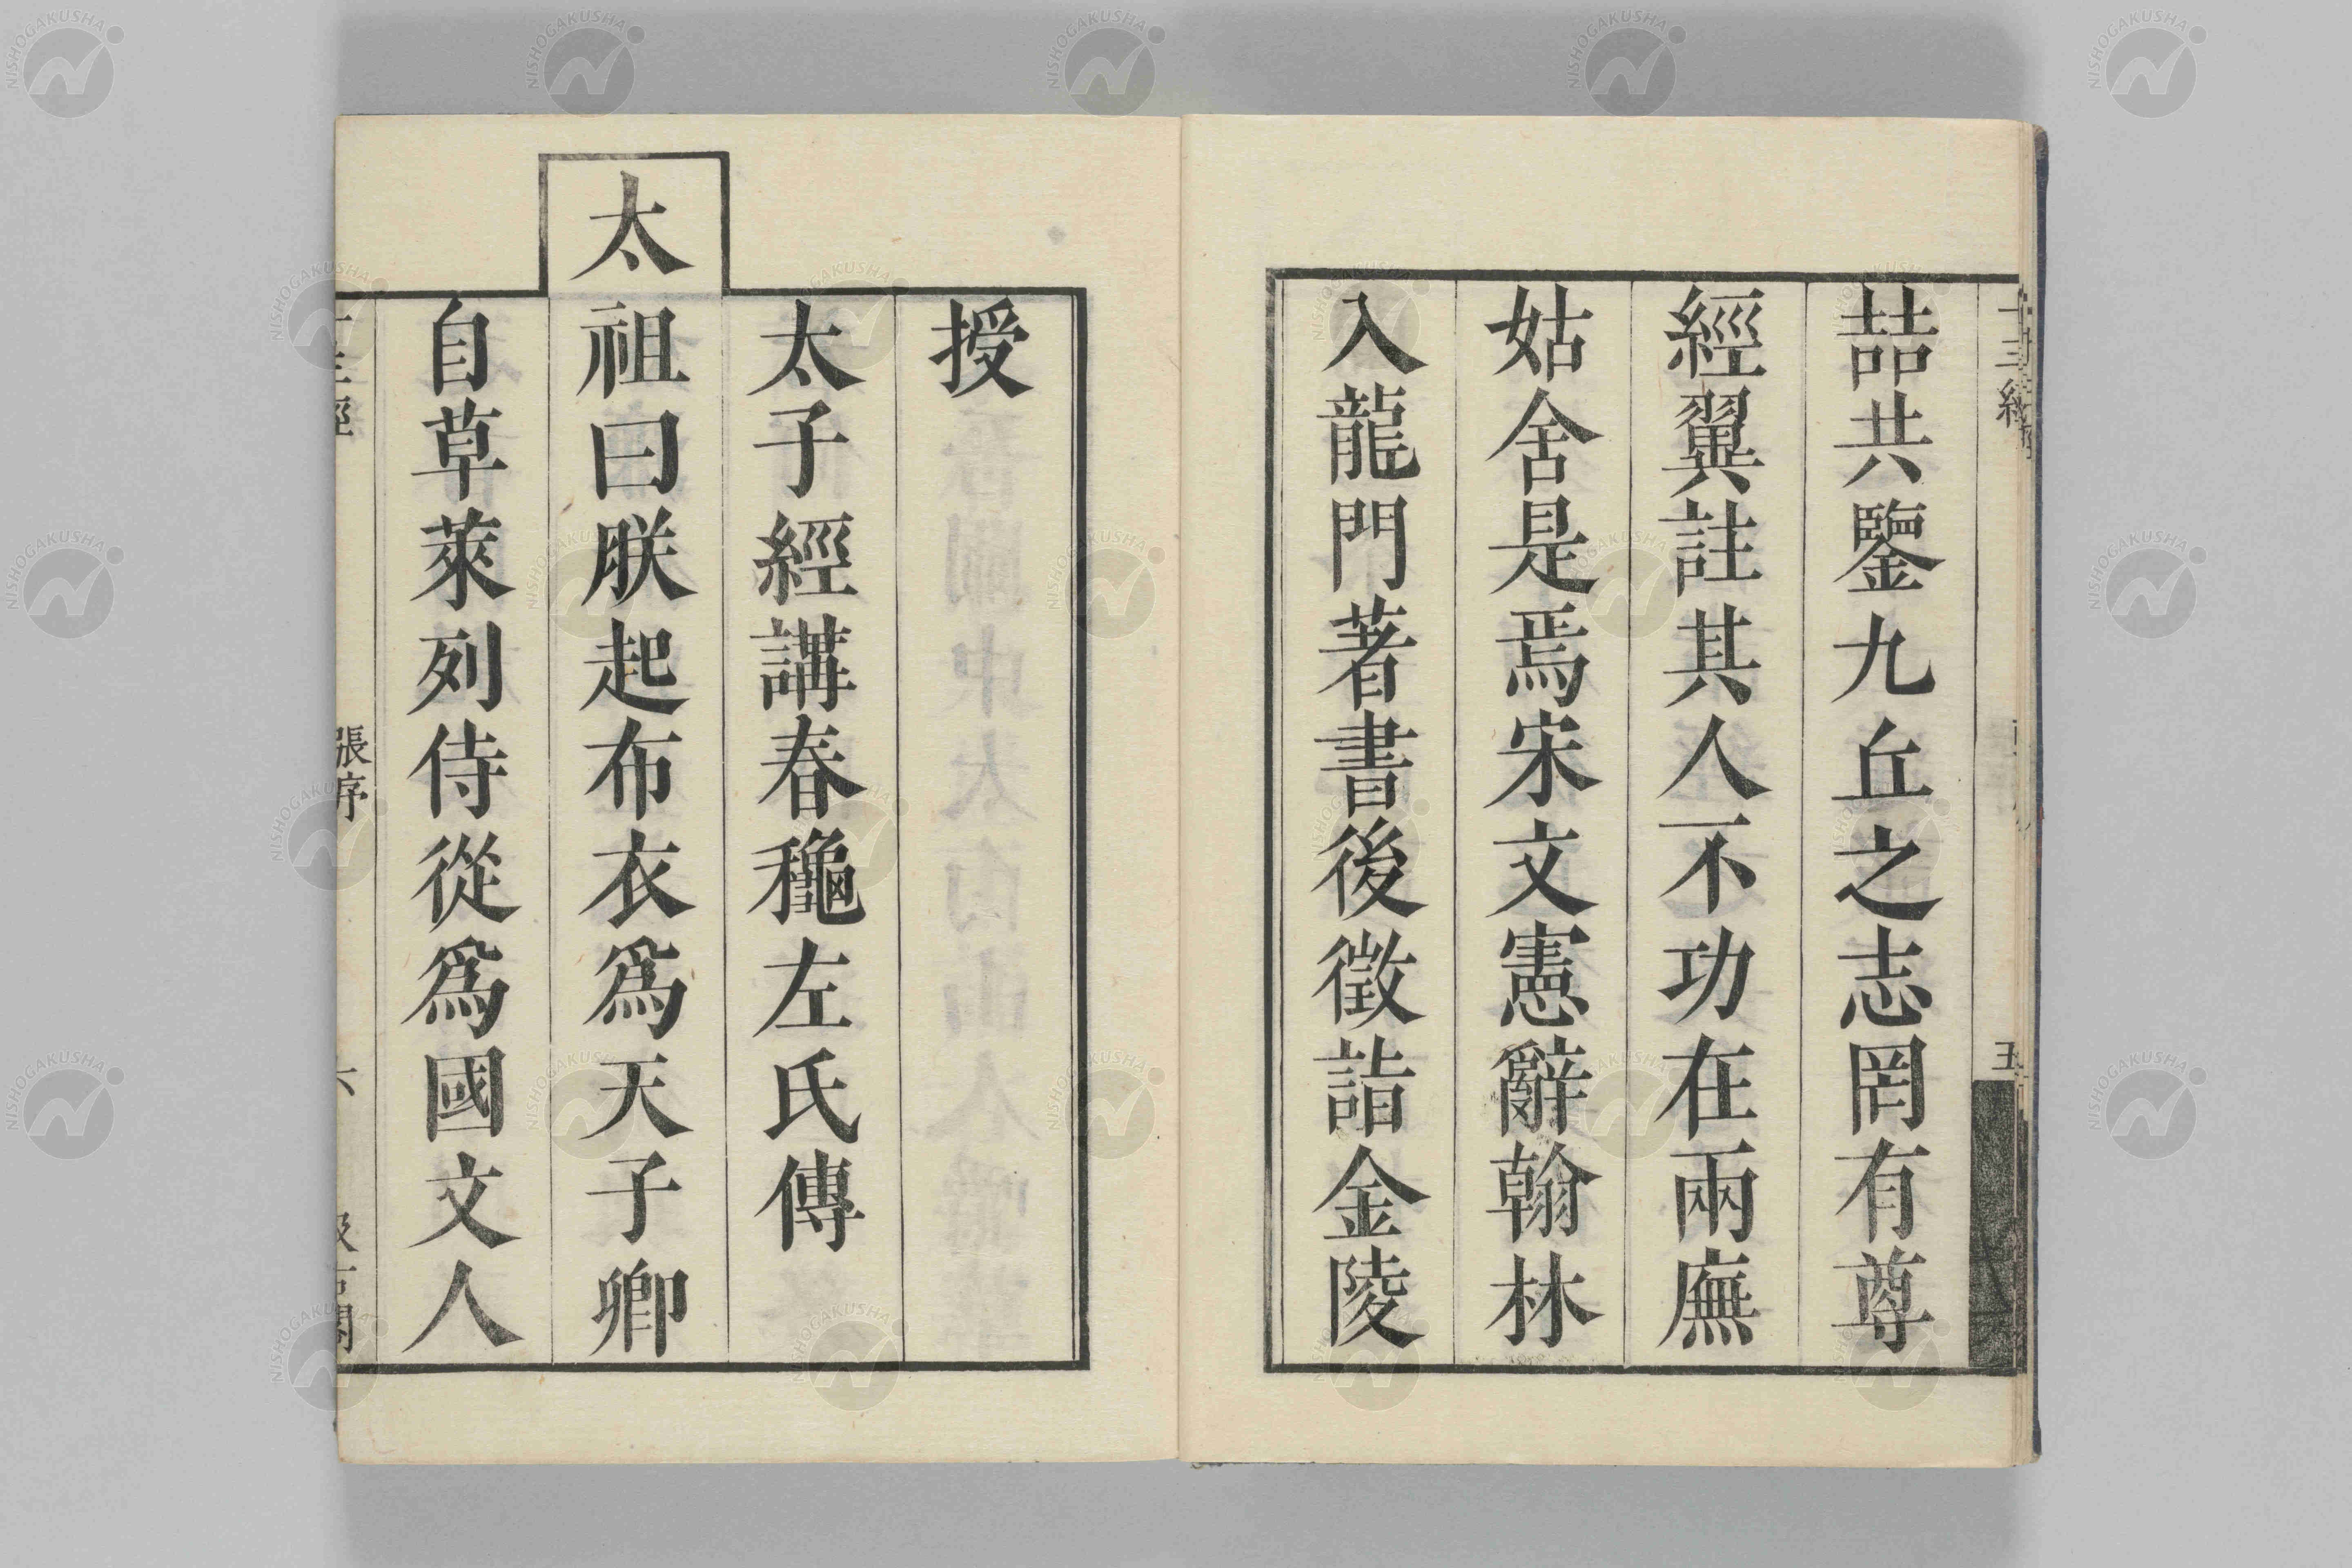 十三經
五
喆共鑒九丘之志罔有尊
經翼註其人不功在兩廡
姑舍是焉宋文憲辭翰林
入龍門著書後徵詣金陵
授
太子經講春龝左氏傳
太祖曰朕起布衣爲天子卿
自草萊列侍從爲國文人
十三經
張序
六
汲古閣
NISHOGAKUSHA